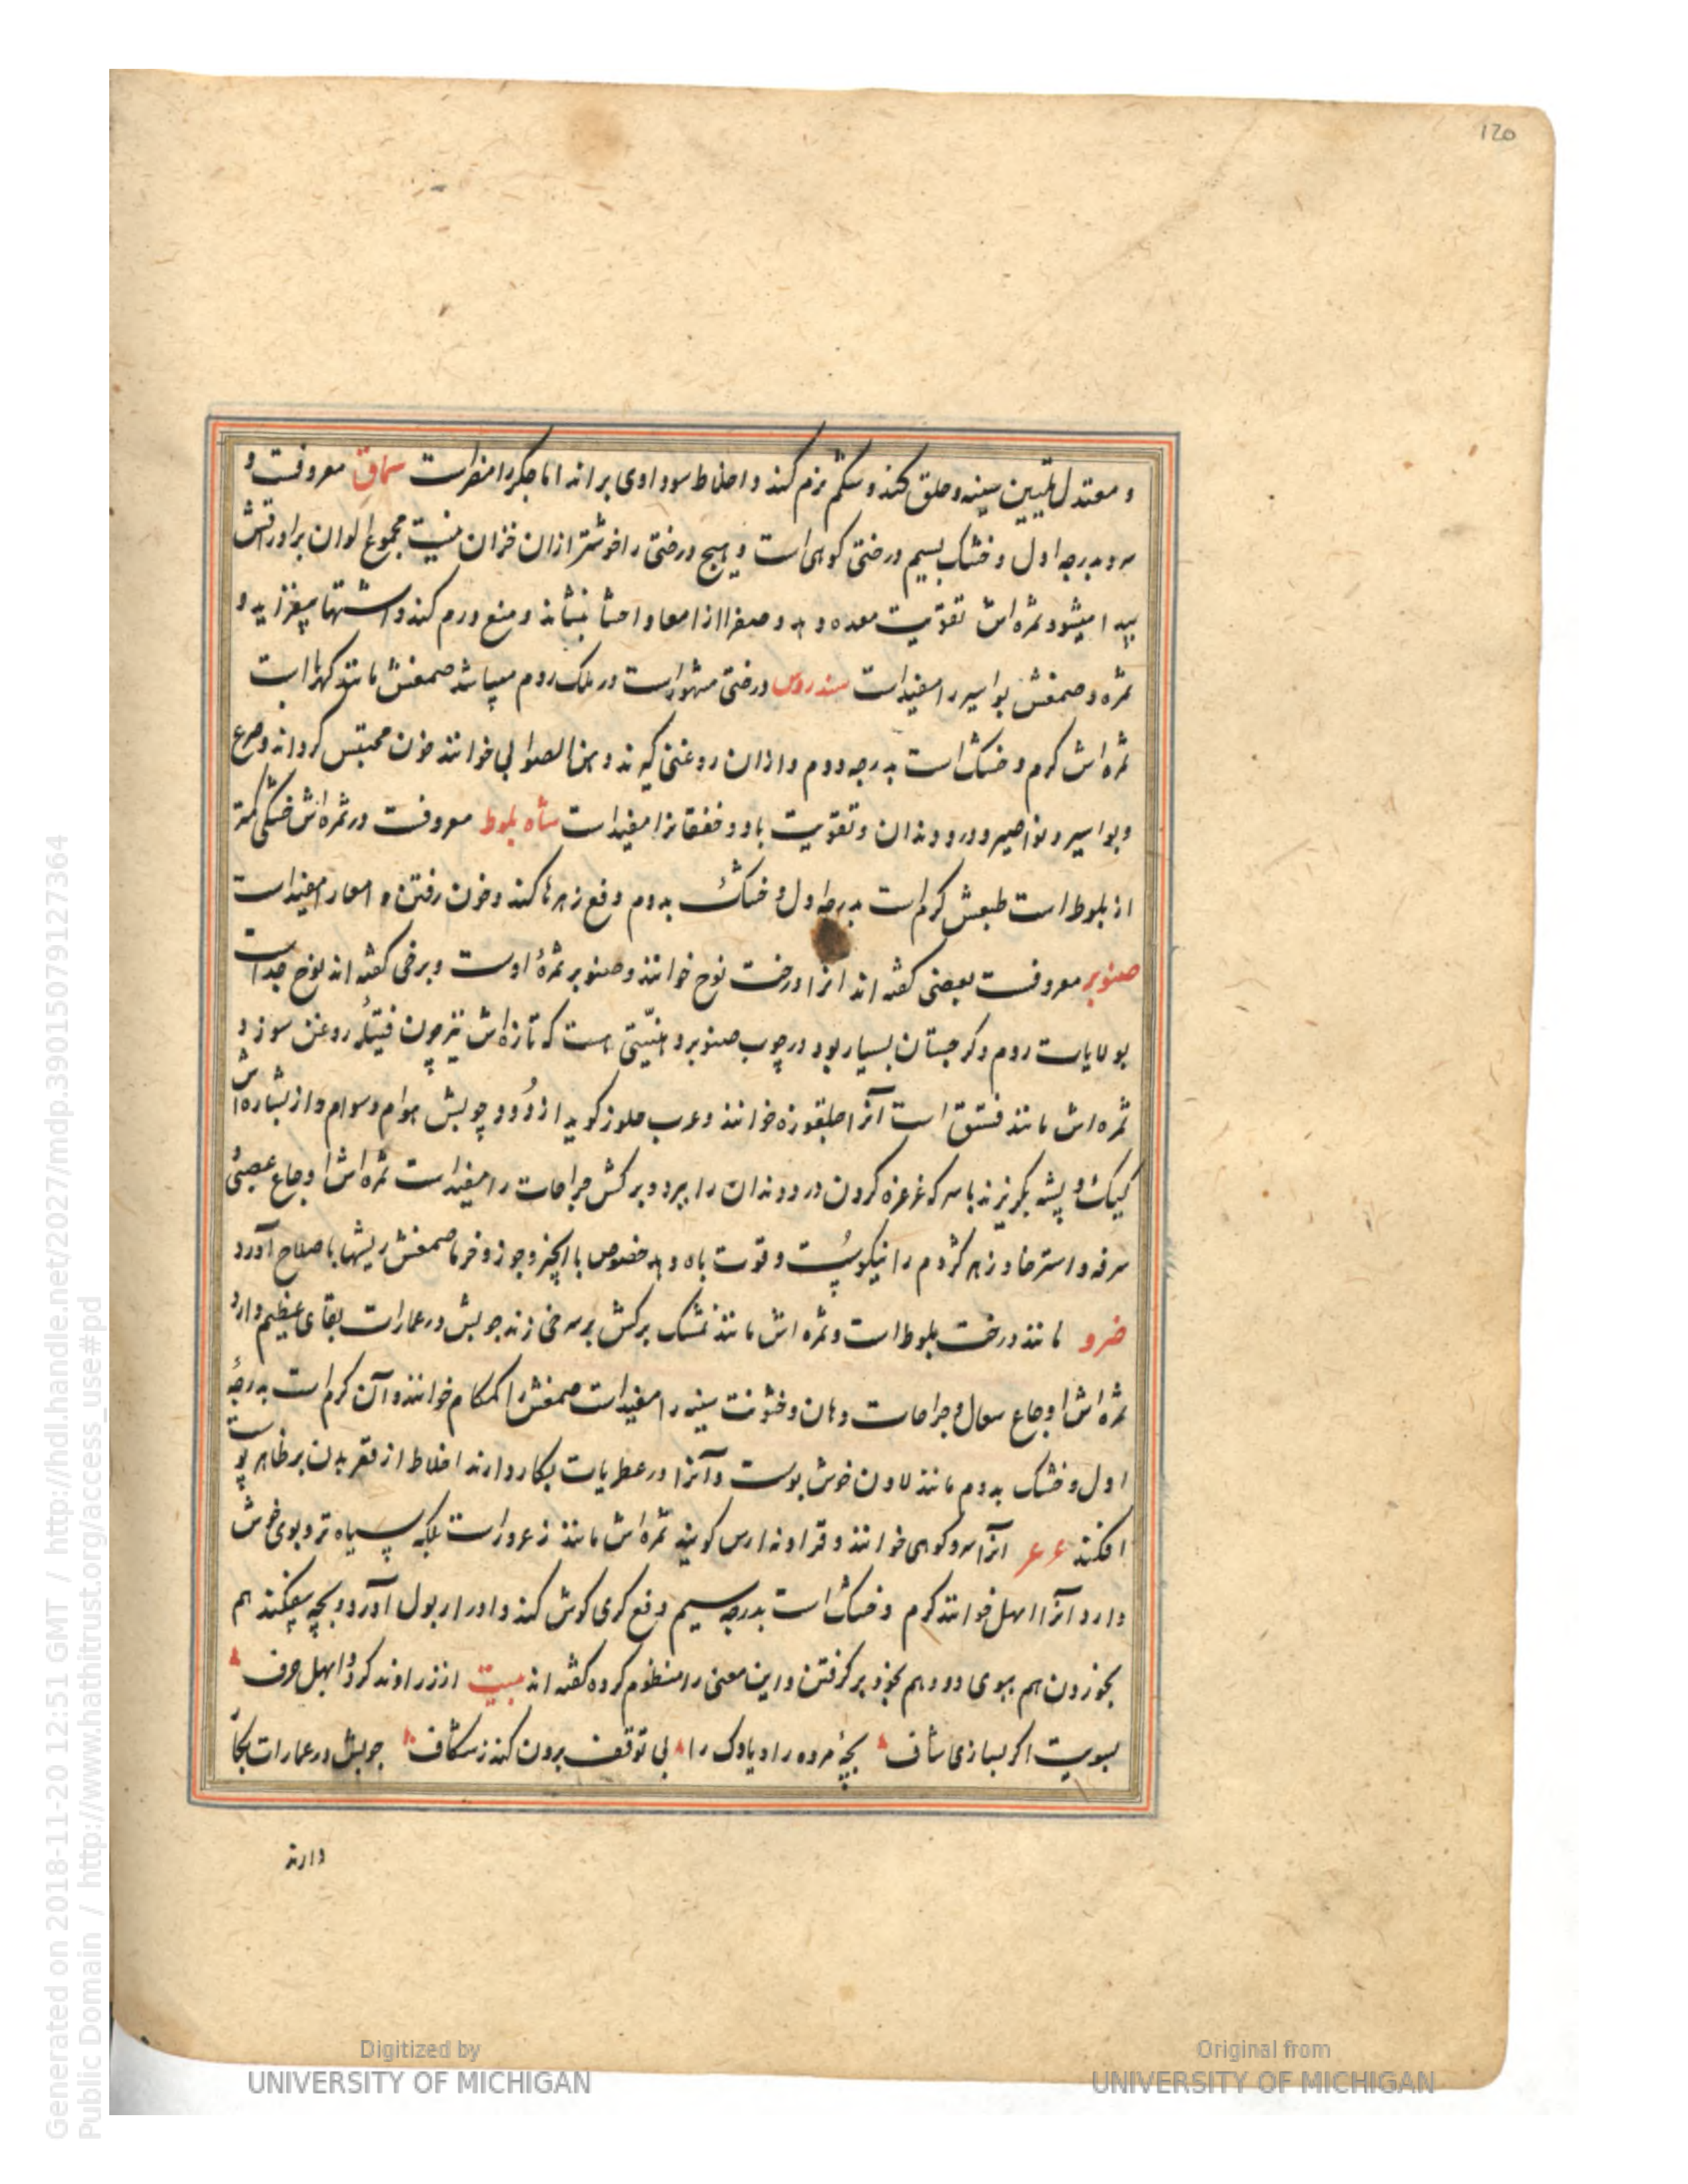 120
و معتدل تلیین سینه و حلق کند و شکم نرم کند و اخلاط سوداوی براند اما جکر را مضرات سماق معروفست و
سرد بدرجه اول و خشک بسیم درختی کوهی است و هیچ درختی را خوشتر ازان خزان نیست مجموع الوان بر اوراقش
پیدا میشود ثمره اش تقویت معده دهد و صفرا از امعا و احشا بنشاند و منع ورم کند و اشتها بیفزاید و
ثمره و صمغش بواسیر را مفیداست سندروس درختی مشهوراست در ملک روم میباشد صمغش مانند کهربا است
ثمره اش کرم و خشک است بدرجه دوم و ازان روغنی کیرند و خوانند خون محتبس کرداند و صرع
و بواسیر و نواصیر و درد دندان و تقویت باه و خفقانرا مفیداست شاه بلوط معروفست در ثمره اش خشکی کمتر
از بلوط است طبعش کرم است بدرجه اول و خشک بدوم دفع زهرها کند و خون رفتن و امعا را مفیداست
صنوبر معروفست بعضی کفته اند انرا درخت نوح خوانند و صنوبر ثمرهٔ اوست و برخی کفته اند نوح جداست
بولایات روم و کرجستان بسیار بود در چوب صنوبر دهنیّتی هست که تازه اش نیز چون فتیلهٔ روغن سوزد و
ثمره اش مانند فستق است آنرا جلغوزه خوانند و عرب جلوز کوید از دُود چوبش هوام و سوام و از نشاره اش
کیک و پشه بکریزند با سرکه غرغره کردن درد دندان را ببرد و برکش جراحات را مفیداست ثمره اش اوجاع عصبی
سرفه و استرخا و زهر کژدم را نیکوست و قوت باه دهد خصوص با انجیر و جوز و خرما صمغش ریشها باصلاح آورد
ضرو مانند درخت بلوط است و ثمره اش مانند برکش بسرخی زند چوبش در عمارات بقای عظیم دارد
ثمره اش اوجاع سعال و جراحات دهان و خشونت سینه را مفیداست صمغش را کمکام خوانند و آن کرم است بدرجهٔ
اول و خشک بدوم مانند لادن خوش بوست و آنرا در عطریات بکار دارند اخلاط از قعر بدن بر ظاهر پوست
افکند عرعر انرا سرو کوهی خوانند و کویند ثمره اش مانند زعروراست بلکه سیاه تر و بوی خوش
دارد انرا ابهل خوانند کرم و خشک است بدرجه سیم دفع کری کوش کند و ادرار بول آورد و بچه بیفکند هم
بخوردن هم ببوی دود هم بخود برکرفتن و این معنی را منظوم کرده کفته اند بیت از زراوند کرد و ابهل صرف
بسویت اکر بسازی شاف بچهٔ مرده را و یا وک را بی توقف برون کند ز شکاف چوبش در عمارات بکار
دارند
Generated on 2018-11-20 12:51 GMT / http://hdl.handle.net/2027/mdp.39015079127364
Public Domain / http://www.hathitrust.org/access_use#pd
Digitized by
UNIVERSITY OF MICHIGAN
Original from
UNIVERSITY OF MICHIGAN